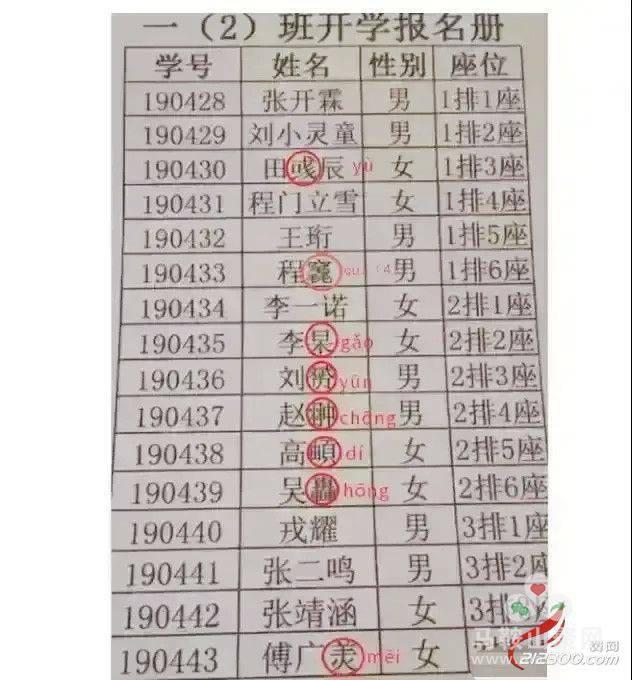 一（2）班开学报名册
学号 姓名 性别 座位
190428 张开霖 男 1排1座
190429 刘小灵童 男 1排2座
190430 田彧辰 yù 女 1排3座
190431 程门立雪 女 1排4座
190432 王珩 男 1排5座
190433 程 男 1排6座
190434 李一诺 女 2排1座
190435 李杲 gǎo 女 2排2座
190436 刘 yūn 男 2排3座
190437 赵翀 chōng 男 2排4座
190438 高頔 dí 女 2排5座
190439 吴轟 hōng 女 2排6座
190440 戎耀 男 3排1座
190441 张二鸣 男 3排2座
190442 张靖涵 女 3排
190443 傅广羙 měi 女
212300.com